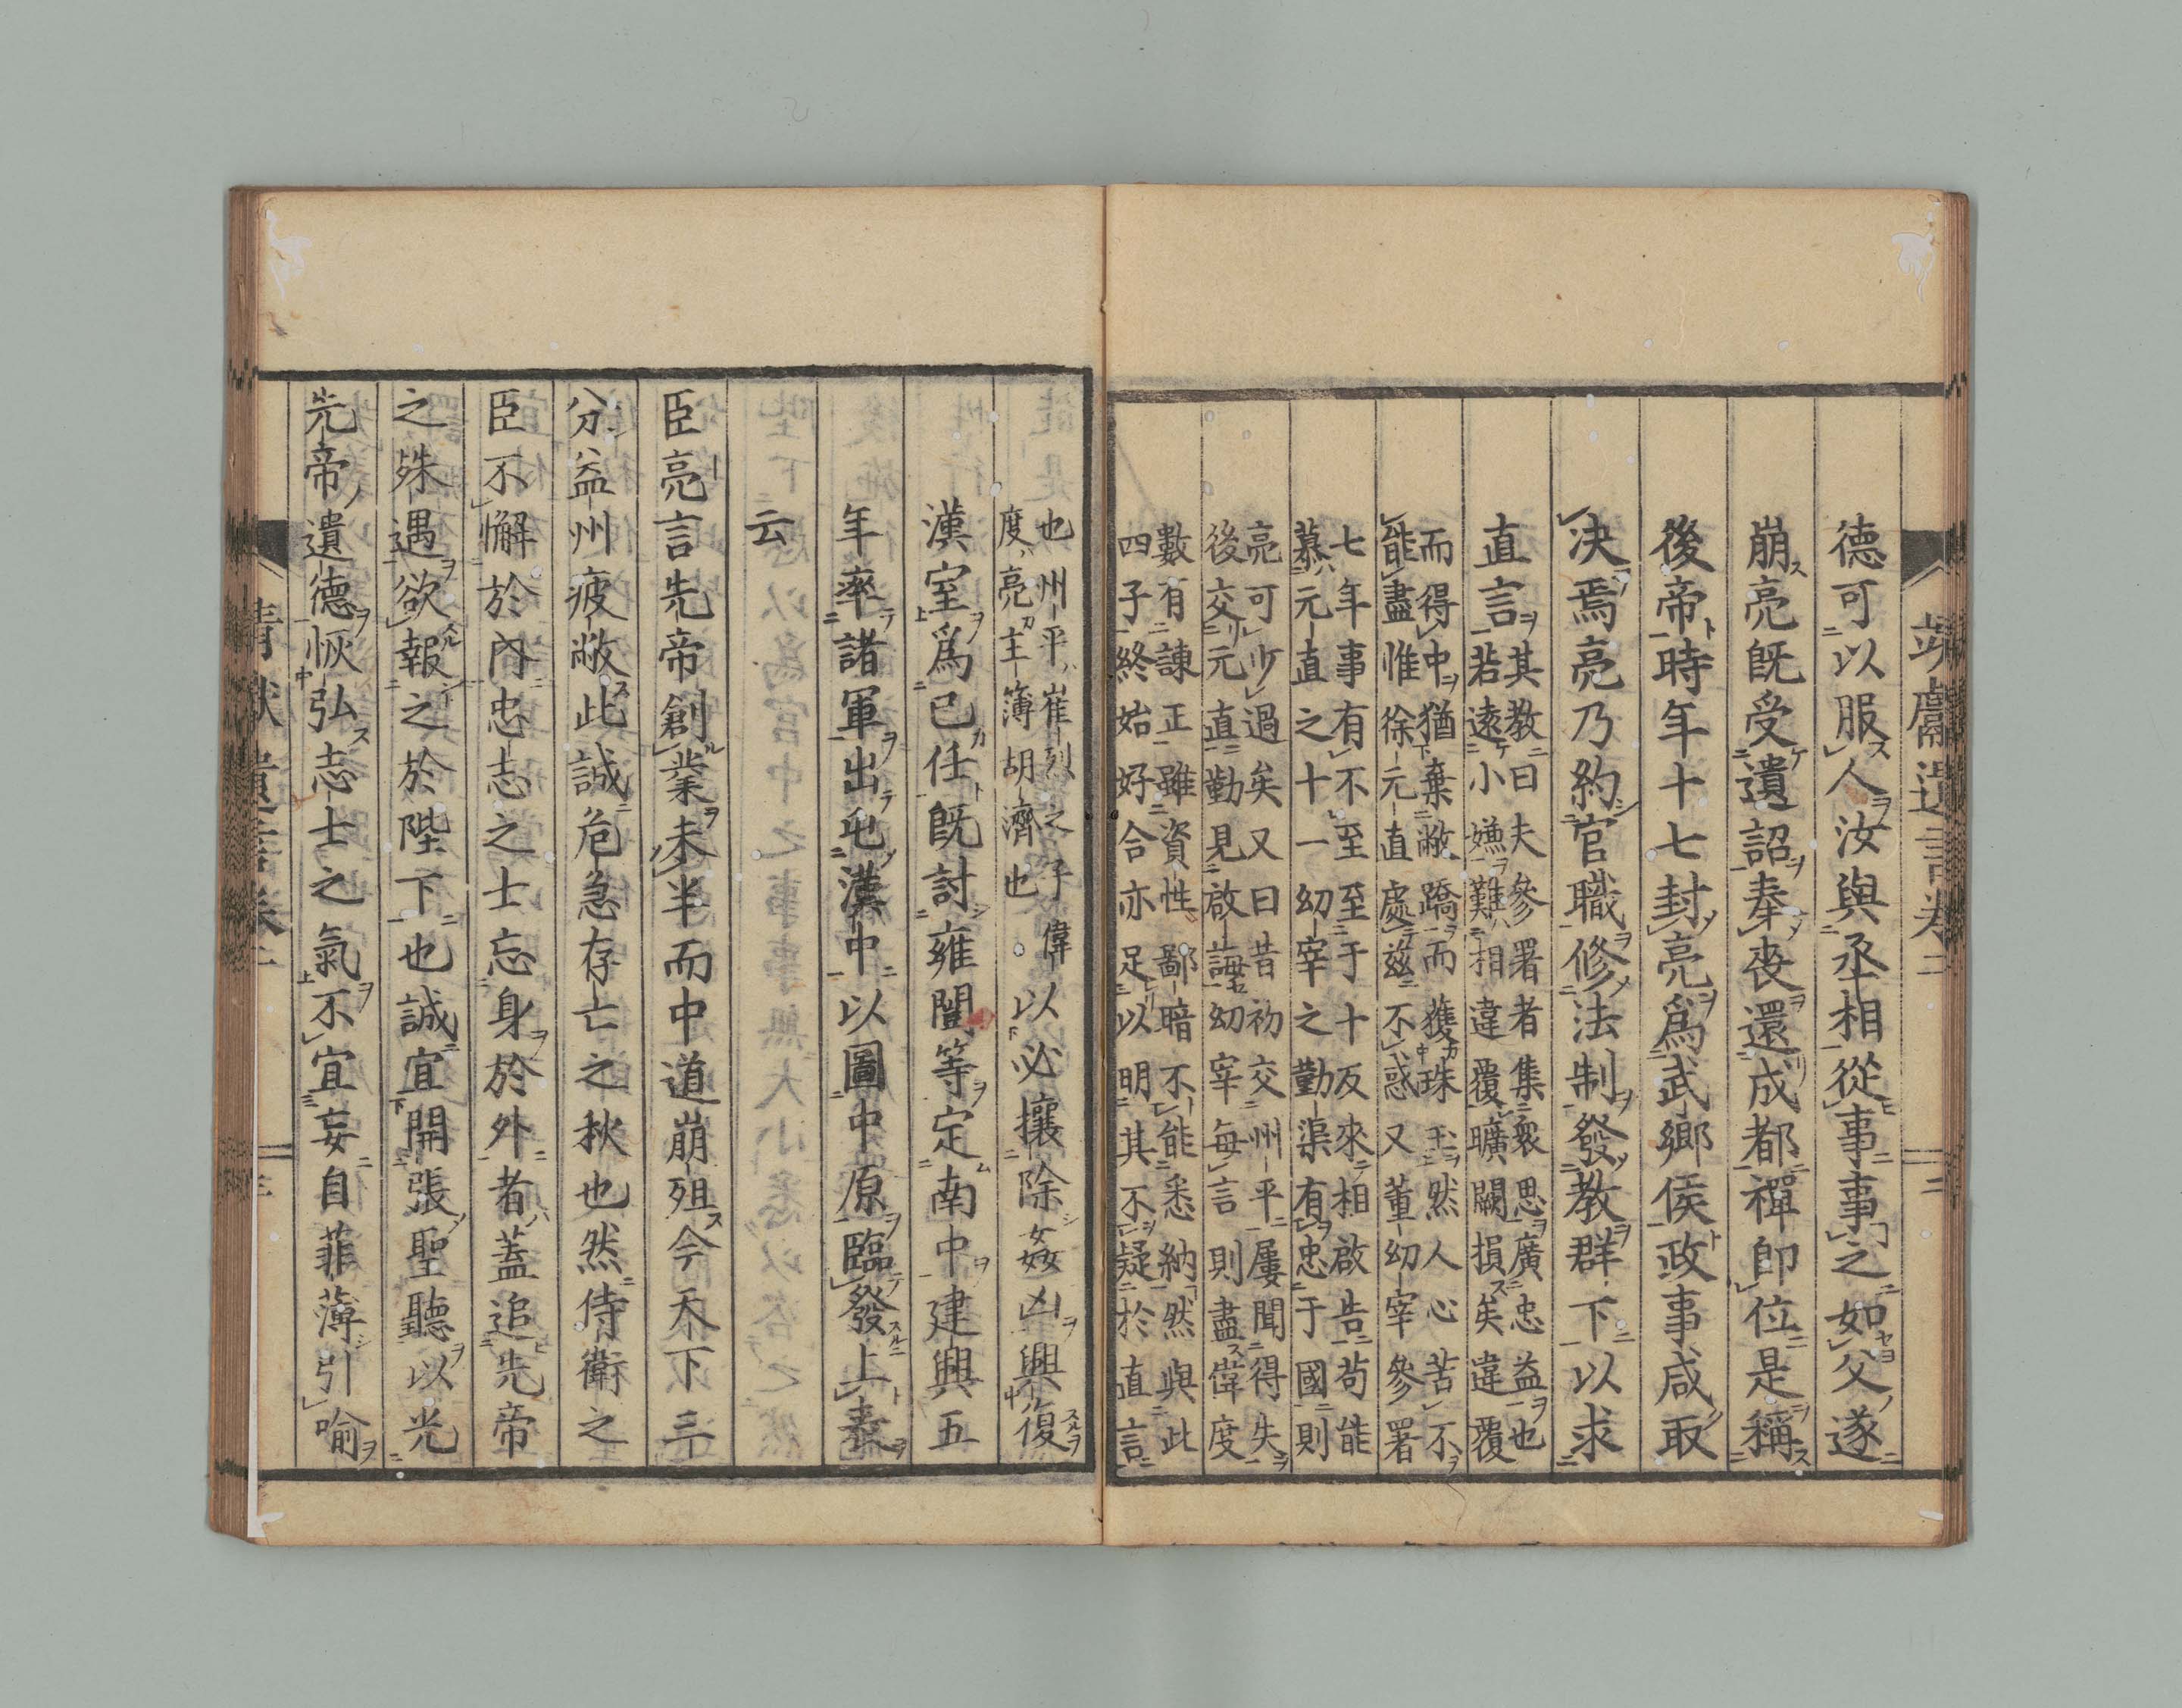 德可以服人汝與丞相從事事之如父遂
崩亮旣受遺詔奉喪還成都禪卽位是稱
後帝時年十七封亮爲武鄉侯政事咸取
决焉亮乃約官職修法制發教群下以求
直言其教曰夫參署者集衆思廣忠益也
若遠小嫌難相違覆曠闕損矣違覆
而得中猶棄敝蹻而獲珠玉然人心苦不
能盡惟徐元直處茲不惑又董幼宰參署
七年事有不至至于十反來相啟告苟能
慕元直之十一幼宰之勤渠有忠于國則
亮可少過矣又曰昔初交州平屢聞得失
後交元直勤見啟誨幼宰每言則盡偉度
數有諫正雖資性鄙暗不能悉納然與此
四子終始好合亦足以明其不疑於直言
也州平崔烈之子偉
度亮主簿胡濟也
以必攘除姦凶興復
漢室爲已任旣討雍闓等定南中建興五
年率諸軍出屯漢中以圖中原臨發上表
云
臣亮言先帝創業未半而中道崩殂今天下三
分益州疲敝此誠危急存亡之秋也然侍衞之
臣不懈於內忠志之士忘身於外者蓋追先帝
之殊遇欲報之於陛下也誠宜開張聖聽以光
先帝遺德恢弘志士之氣不宜妄自菲薄引喻